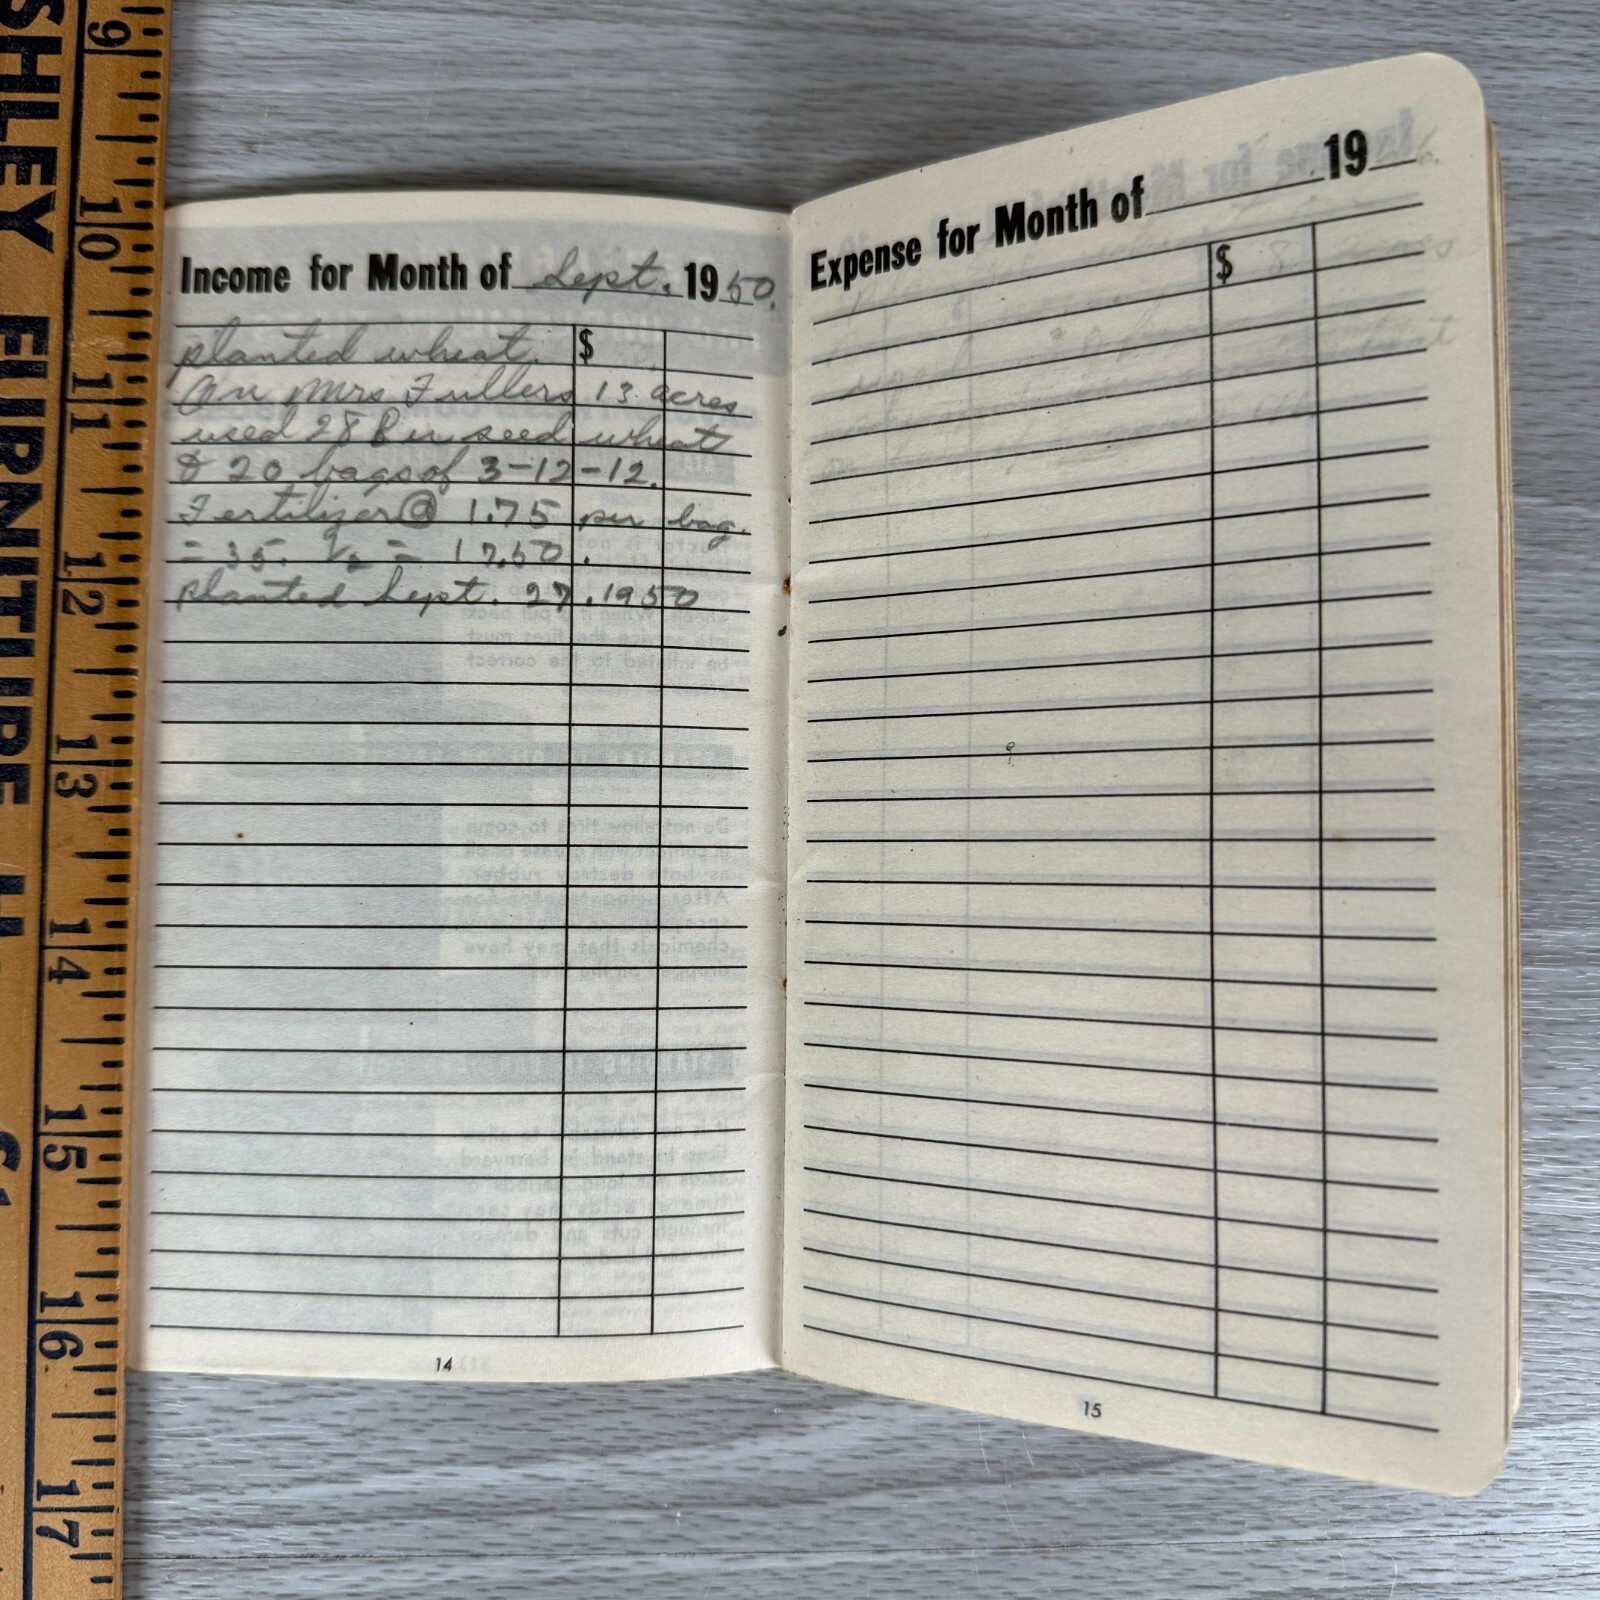 SHLEY FURNITURE H
9 10 11 12 13 14 15 16 17
Income for Month of Sept. 1950.
$
planted wheat.
On Mrs Fullers 13 acres
used 28 Bu seed wheat
& 20 bags of 3-12-12.
Fertilizer @ 1.75 per bag.
= 35. ½ = 17.50.
planted Sept. 27, 1950
14
Expense for Month of 19
$
15